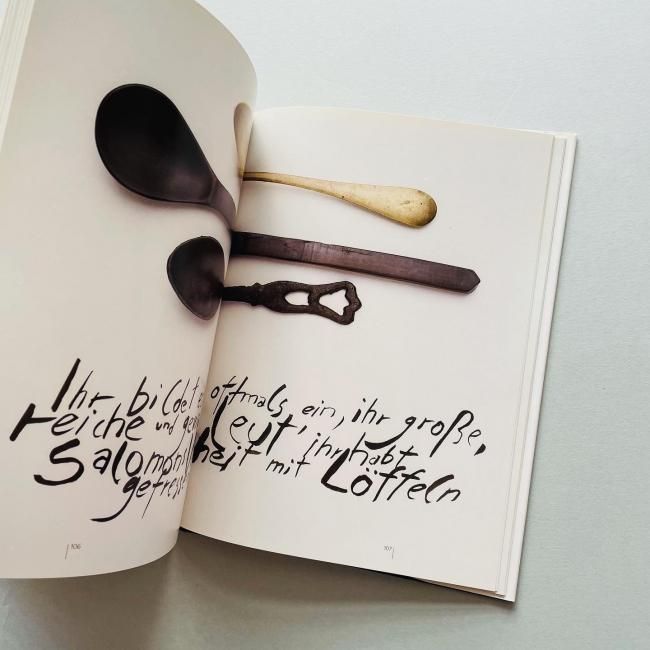 Ihr bildet e oftmals ein, ihr große,
reiche und ge Leut' ihr habt
Salomons heit mit Löffeln
gefresse
106
107